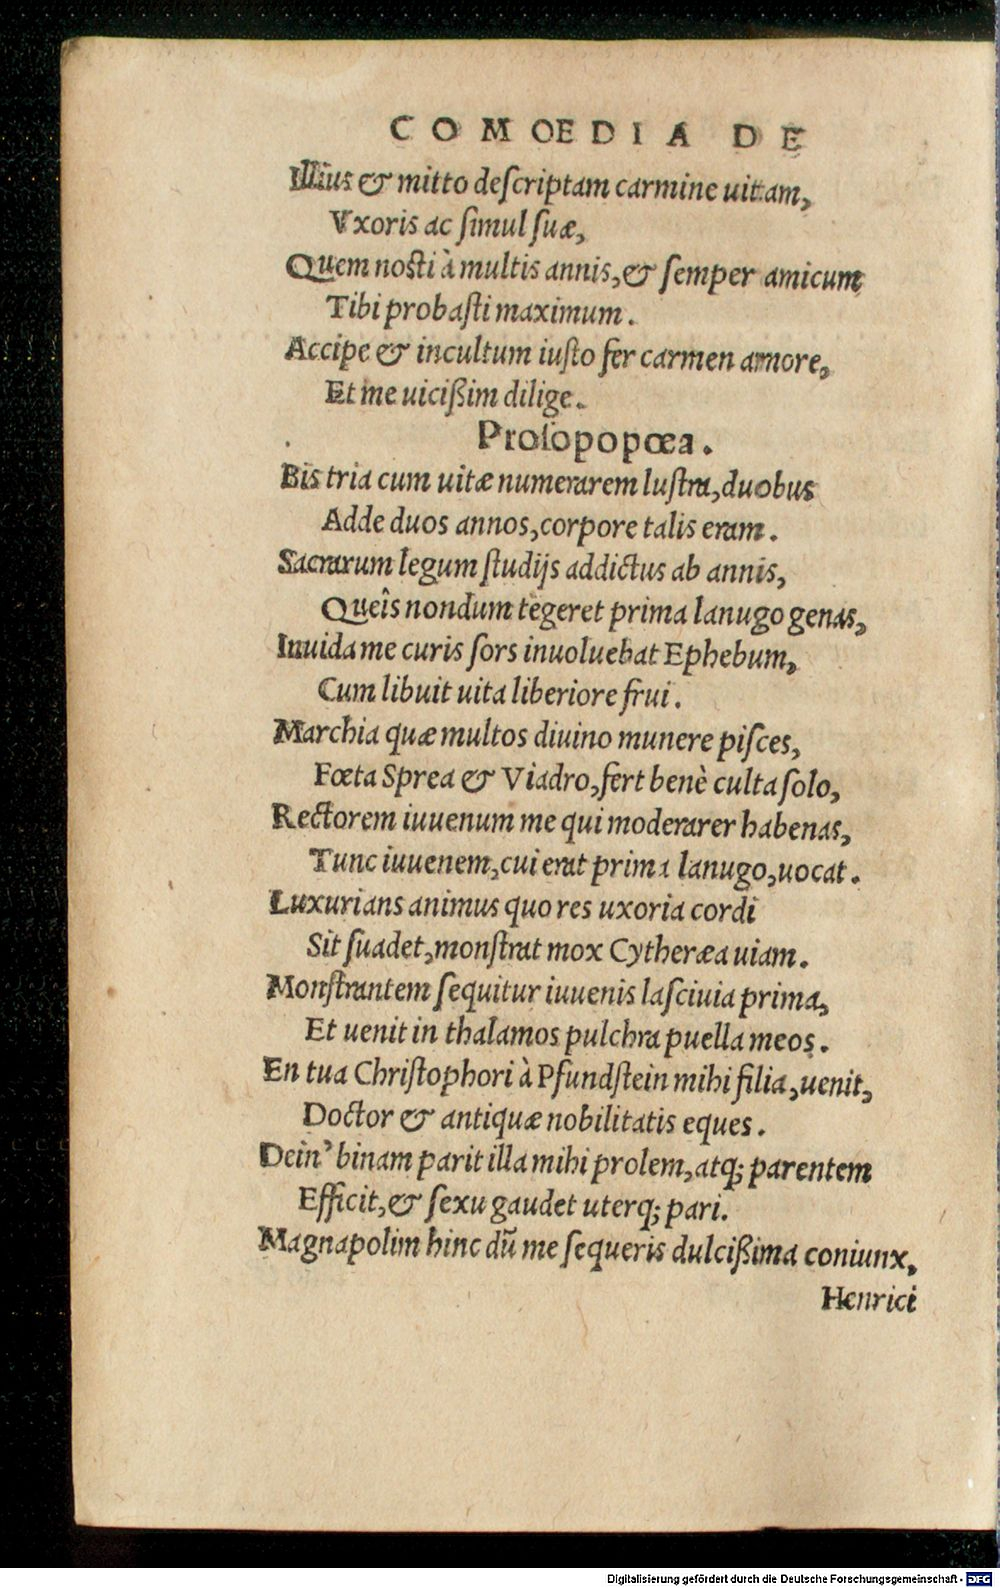 COMOEDIA DE
Illius & mitto deſcriptam carmine uitam,
Vxoris ac ſimul ſuæ,
Quem noſti à multis annis, & ſemper amicum
Tibi probaſti maximum.
Accipe & incultum iuſto fer carmen amore,
Et me uicißim dilige.
Proſopopœa.
Bis tria cum uitæ numerarem luſtra, duobus
Adde duos annos, corpore talis eram.
Sacrarum legum ſtudijs addictus ab annis,
Queîs nondum tegeret prima lanugo genas,
Inuida me curis ſors inuoluebat Ephebum,
Cum libuit uita liberiore frui.
Marchia quæ multos diuino munere piſces,
Fœta Sprea & Viadro, fert benè culta ſolo,
Rectorem iuuenum me qui moderarer habenas,
Tunc iuuenem, cui erat prima lanugo, uocat.
Luxurians animus quo res uxoria cordi
Sit ſuadet, monſtrat mox Cytheræa uiam.
Monſtrantem ſequitur iuuenis laſciuia prima,
Et uenit in thalamos pulchra puella meos.
En tua Chriſtophori à Pfundſtein mihi filia, uenit,
Doctor & antiquæ nobilitatis eques.
Dein' binam parit illa mihi prolem, atq; parentem
Efficit, & ſexu gaudet uterq; pari.
Magnapolim hinc dũ me ſequeris dulcißima coniunx,
Henrici
Digitalisierung gefördert durch die Deutsche Forschungsgemeinschaft - DFG